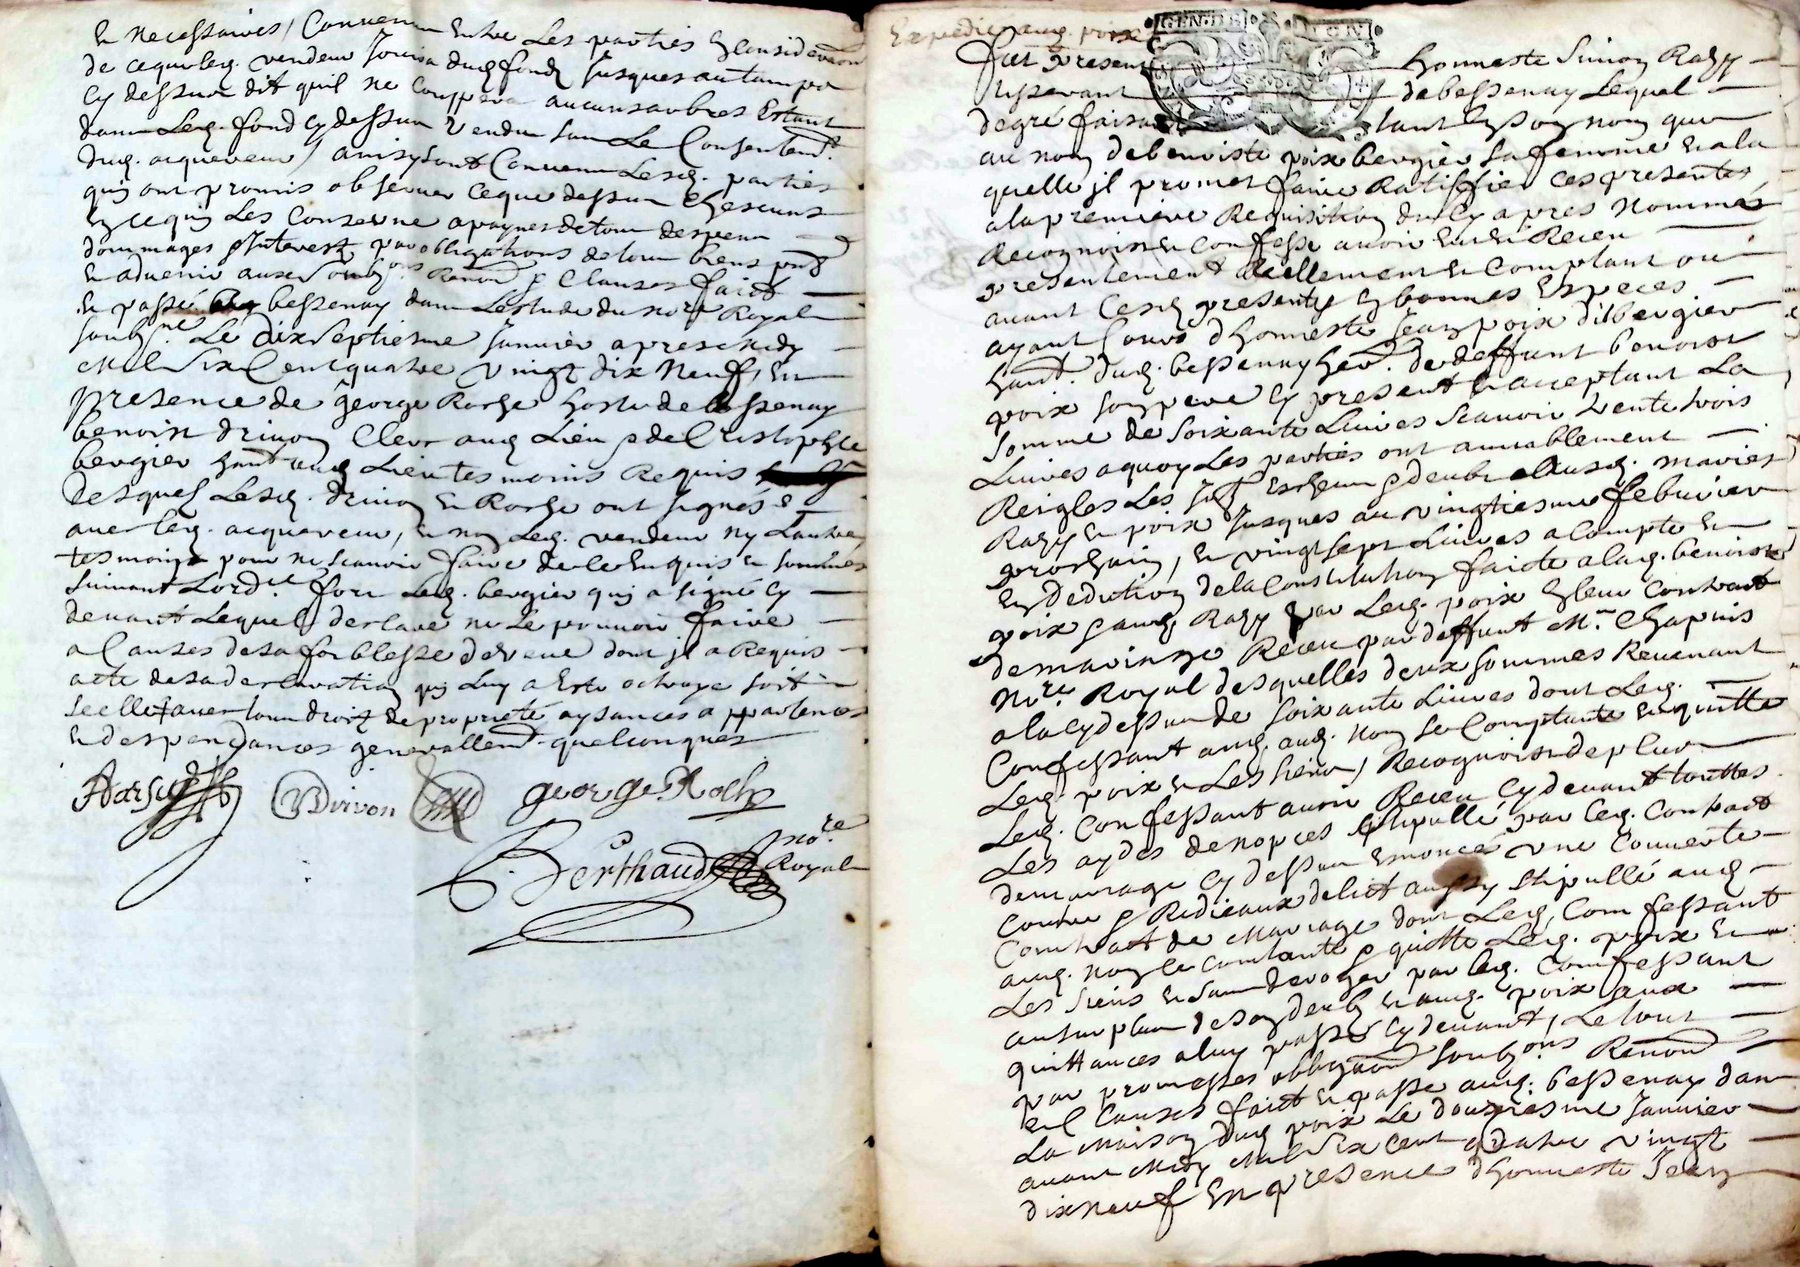 et necessaires, Convenu Entre Les parties En consideraon
de ce que led. vendeur Jouira dud fondz Jusques au temps
cy dessus dit quil ne Couppera aucuns arbres Estant
dans Led. fond cy dessus vendu sans Le Consentemt.
dud. acquereur, ainsy sont Convenu Lesd. parties
qui ont promis observer ce que dessus Chescuns
En ce qui Les Conserne a paynes de tous despens
dommages & Interest par obligations de tous biens pnt
et advenir aux soubzons Renon & Clauses faict
et passé bessenay dans Lestude du nore Royal
soubzne. Le dix septiesme Janvier apres midy
Mil Six Cent quatre vingt dix Neuf, En
presence de george Roche hoste de bessenay
benoist drivon Clerc aud Lieu & de Christophle
bergier hant aud Lieu tesmoins Requis
desquelz Lesd. drivon et Roche ont signés
avec led. acquereur, et non Led. vendeur ny Lautre
tesmoingt pour ne scavoir faire de ce Enquis et sommés
suivant Lordce. fors Led. bergier qui a signé cy
devant Lequel a declaré ne Le pouvoir faire
a Causes de sa foiblesse de veue dont jl a Requis
acte de sa declaration qui Luy a Esté octroye soit
scellé avec tous droitz de proprieté aysances appartences
et despendances generallemt. quelconques
VDrivon george Roche
Berthaud nore.
Royal
Expedié aud. poix
GEN. DE LION
Fut Present honneste Simon Razy
tisserant de bessenay Lequel
de gré faisant tant En son nom que
au nom de benoiste poix bergier sa femme et a la
quelle jl promet faire Ratiffier ces presentes
a la premiere Requisition du cy apres nommés
Recognoist et confesse avoir eu et Receu
presentement Reellement et Comptant ou
avant Cesd presentes En bonnes Especes
ayant Cours d'honneste Jean poix dit bergier
hant. dud. bessenay her. de deffunt benoist
poix son pere cy present et acceptant La
somme de soixante Livres scavoir trente trois
Livres a quoy Les parties ont amiablement
Reigles Les Jntz Escheuz & deubz Ausd. mariés
Razy et poix Jusques au vingtiesme febvrier
prochain, et vingt sept Livres a Compte et
En dedution de la Constitution faicte a lad. benoiste
poix & aud Razy par Led. poix En leur Contraict
de mariage Receu par deffunt Mr. Chapuis
Nore. Royal desquelles deux sommes Revenant
a la cy dessus de soixante Livres dont Led.
Confessant aud. aud. nom se Comptante et en quitte
Led. poix et Les siens, Recognoist de plus
Led. Confessant avoir Receu cy devant touttes
Les aydes de nopces stipullé par led. Contraict
de mariage cy dessus Enoncés une Couverte
Contre & Ridieaux de lict aussy stipullé aud
Contraict de Mariage dont Led. Comfessant
aud. nom se comtante & quitte Led. poix et
Les siens et sans deroger par led. Comfessant
au surplus de son deub et aud. poix aux
quittances a luy passé cy devant, Le tout
par promesses obligaons soubzons Renon
et Clauses faict et passe aud. bessenay dans
La Maison dud poix Le douziesme Janvier
avant Midy Mil six cent quatre vingt
dix neuf En presence d'honneste Jean